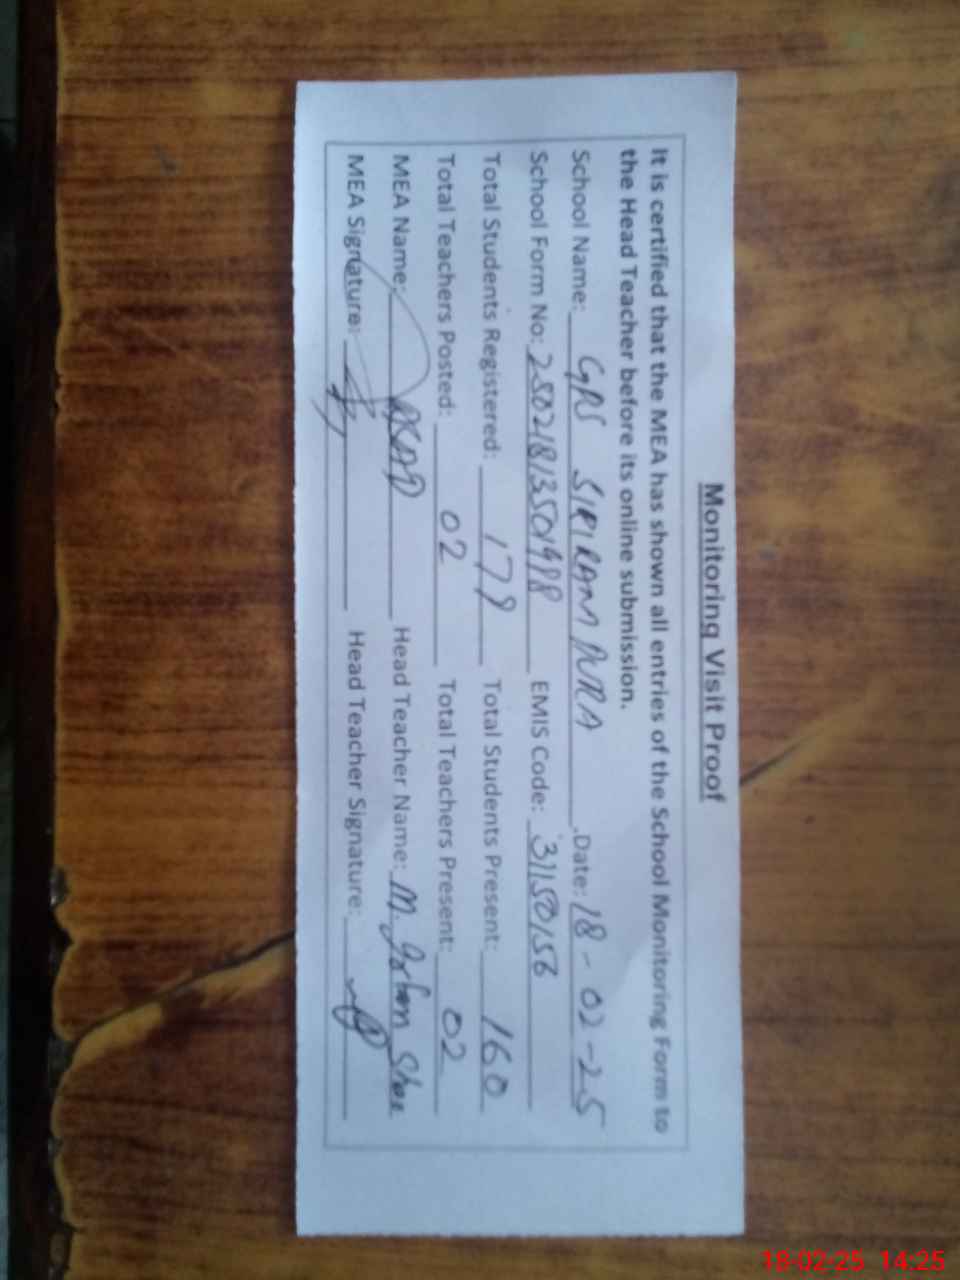 Monitoring Visit Proof
It is certified that the MEA has shown all entries of the School Monitoring Form to
the Head Teacher before its online submission.
School Name: GPS SIRIRAM PURA Date: 18-02-25
School Form No: EMIS Code: 31150156
Total Students Registered: 178 Total Students Present: 160
Total Teachers Posted: 02 Total Teachers Present: 02
MEA Name: Head Teacher Name: M.
MEA Signature: Head Teacher Signature:
18-02-25 14:25